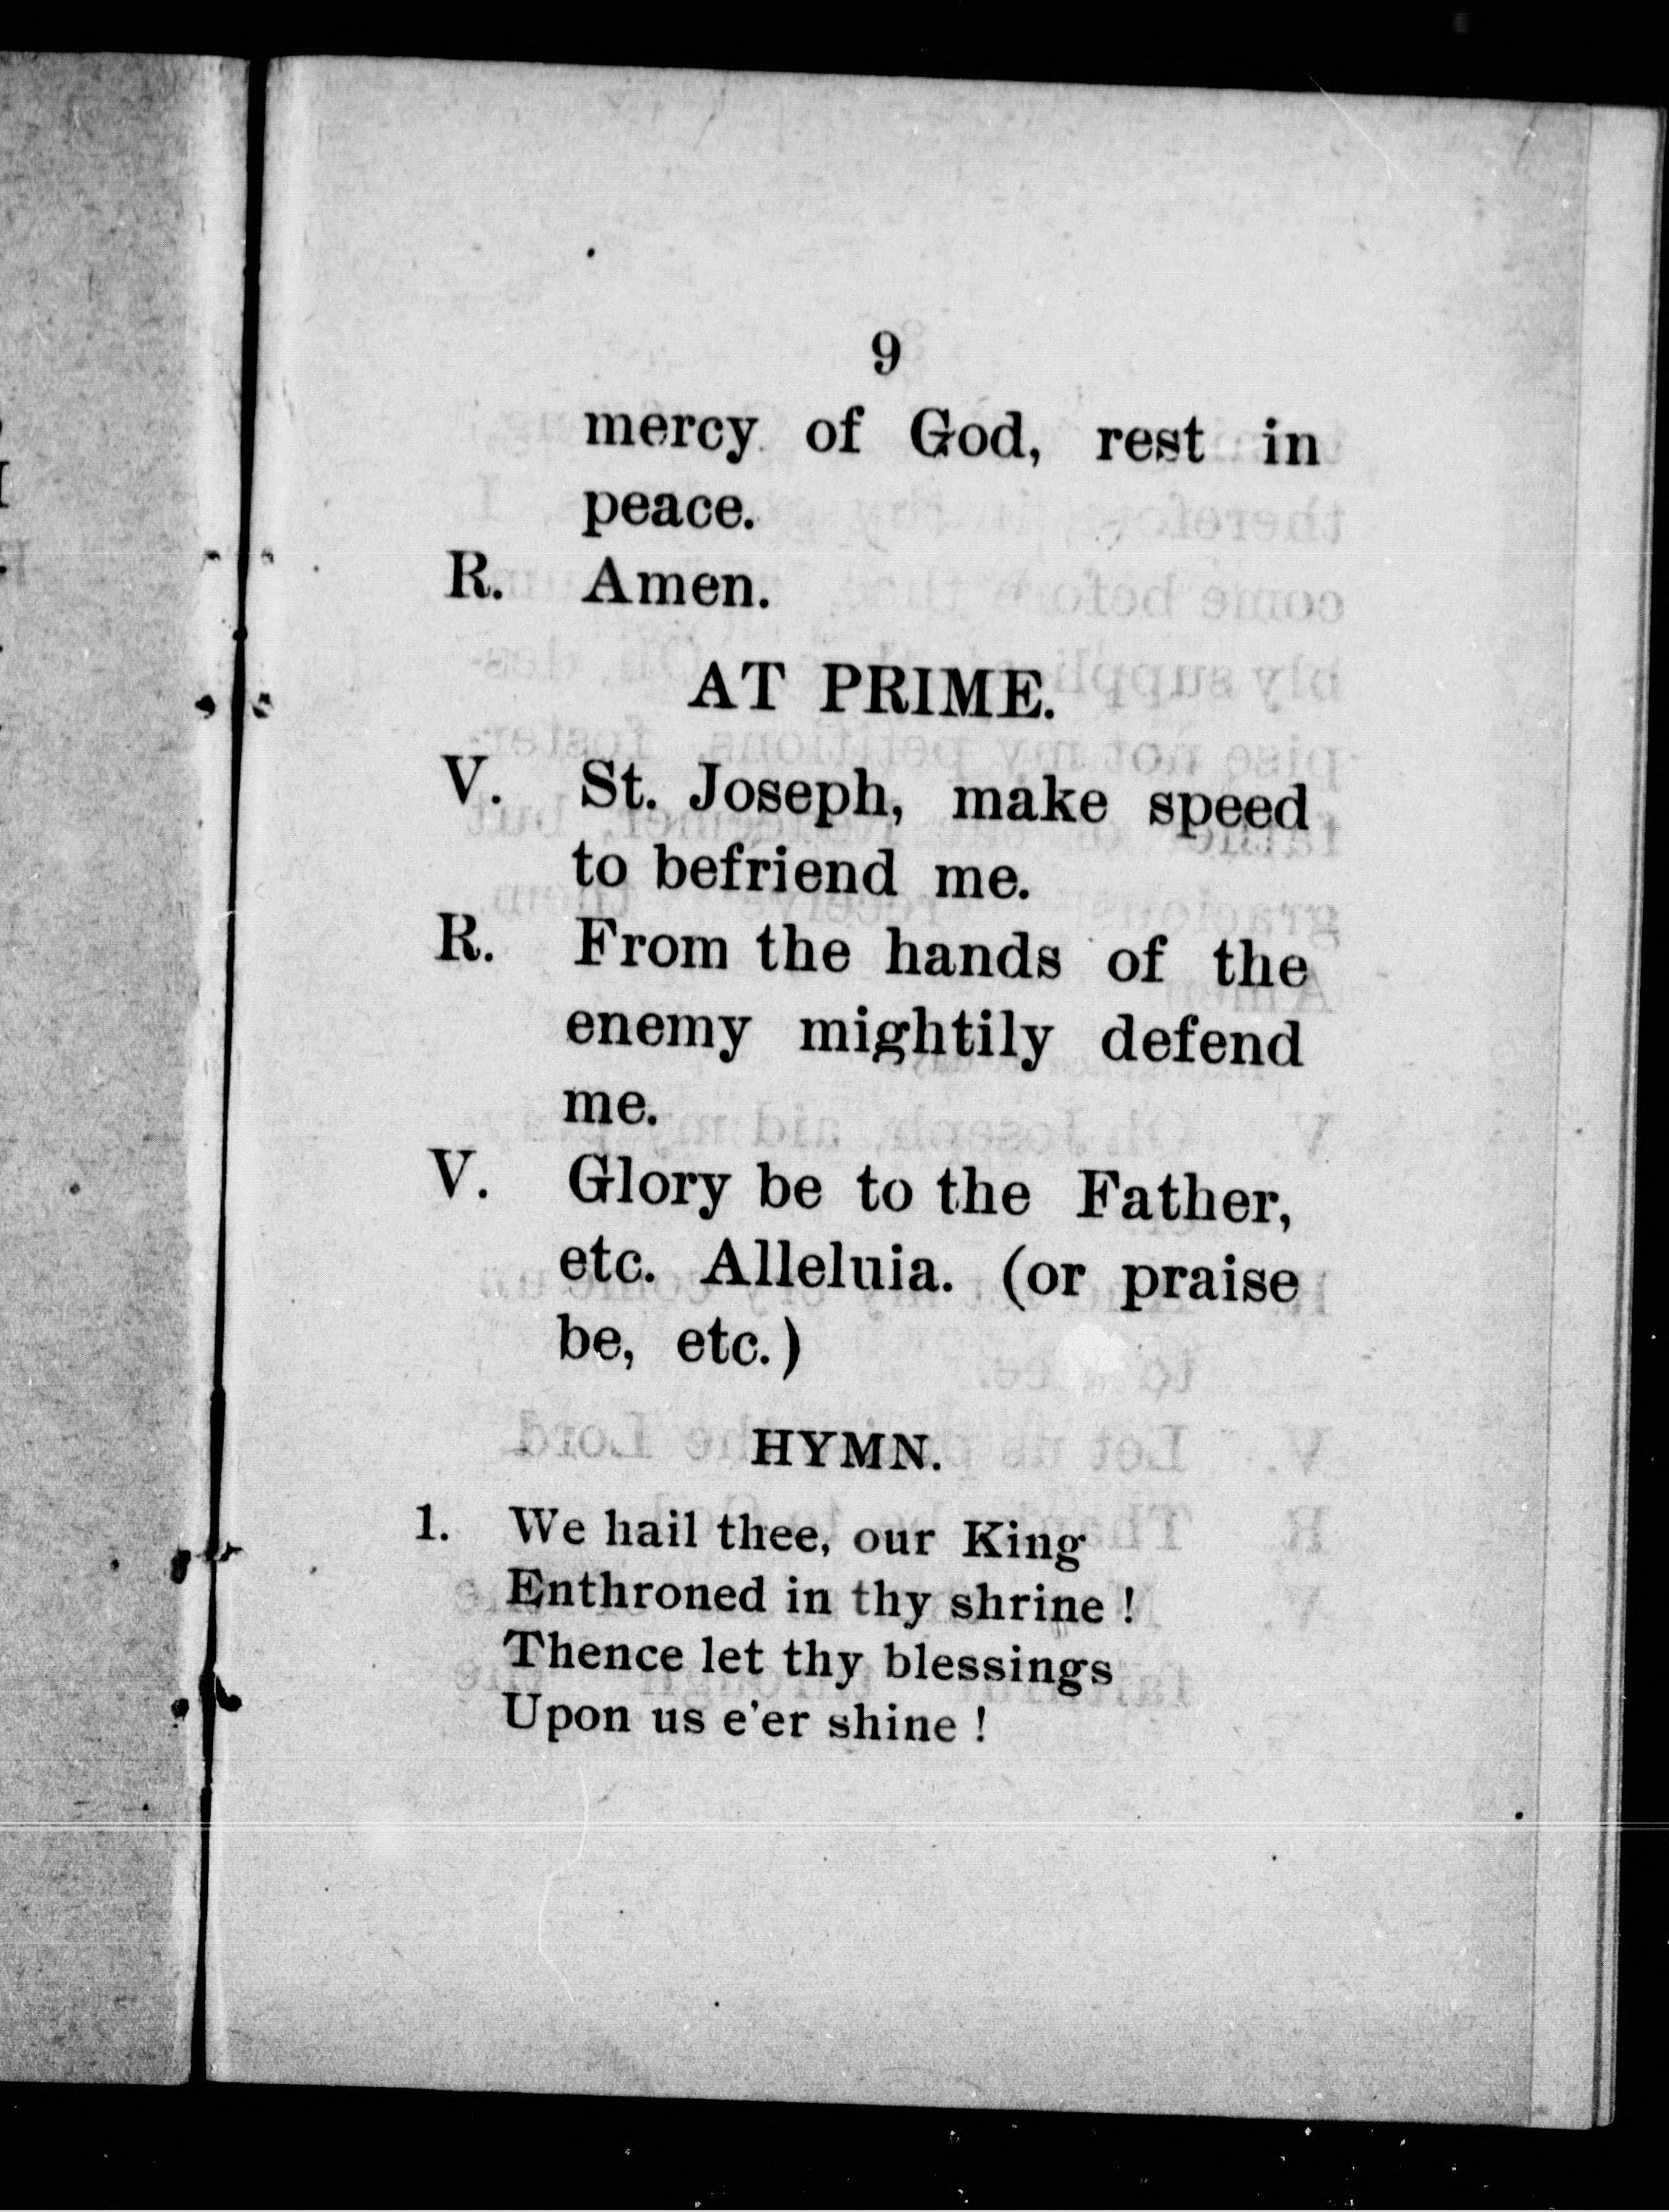 9
mercy of God, rest in
peace.
R. Amen.
AT PRIME.
V. St. Joseph, make speed
to befriend me.
R. From the hands of the
enemy mightily defend
me.
V. Glory be to the Father,
etc. Alleluia. (or praise
be, etc.)
HYMN.
1. We hail thee, our King
Enthroned in thy shrine !
Thence let thy blessings
Upon us e'er shine !